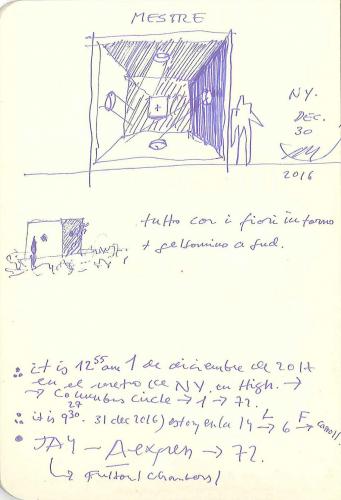 MESTRE
NY.
DEC.
30
2016
tutto con i fiori intorno
+ gelsomino a sud.
it is 12 55 am 1 de diciembre de 2017
en el metro de NY. en High. →
→ Columbus circle → 1 → 72.
27
it is 9 30. 31 dec 2016) estoy en la 14 L → 6 F → Carroll
JAY - A express → 72.
↳ Fulton / Chambers /